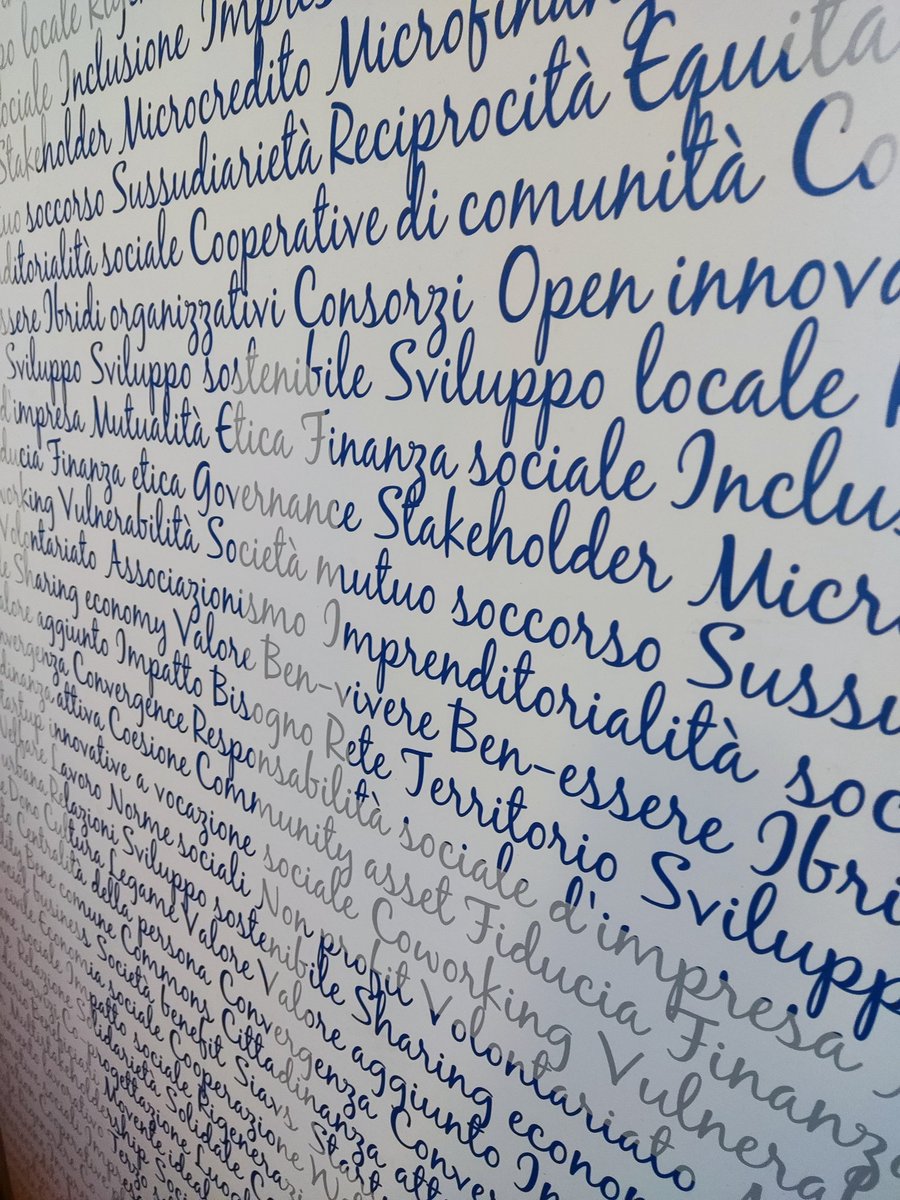 po locale Rig
sociale Inclusione Impres
Stakeholder Microcredito Microfinan
tuo soccorso Sussudiarietà Reciprocità Equita
ditorialità sociale Cooperative di comunità Co
ssere Ibridi organizzativi Consorzi Open innova
Sviluppo Sviluppo sostenibile Sviluppo locale
d'impresa Mutualità Etica Finanza sociale Inclus
ducia Finanza etica Governance Stakeholder Micr
working Vulnerabilità Società mutuo soccorso Sussu
Volontariato Associazionismo Imprenditorialità soc
le Sharing economy Valore Ben-vivere Ben-essere Ibri
alore aggiunto Impatto Bisogno Rete Territorio Svilupp
nvergenza Convergence Responsabilità sociale d'impresa
dinanza attiva Coesione Community asset Fiducia Finanz
Startup innovative a vocazione sociale Coworking Vulnera
Welfare Lavoro Norme sociali Non profit Volontariato
urbana Relazioni Sviluppo sostenibile Sharing econom
e Dono Cultura Legame Valore Valore aggiunto Im
Centralità della persona Convergenza Conver
Bene comune Commons Cittadinanza att
social business Società benefit Siavs Start
ivile Economia sociale Cooperazione We
sociale Impatto sociale Rigenerazi
Solidarietà Solidale
progettazione Luogo
Movente ideal